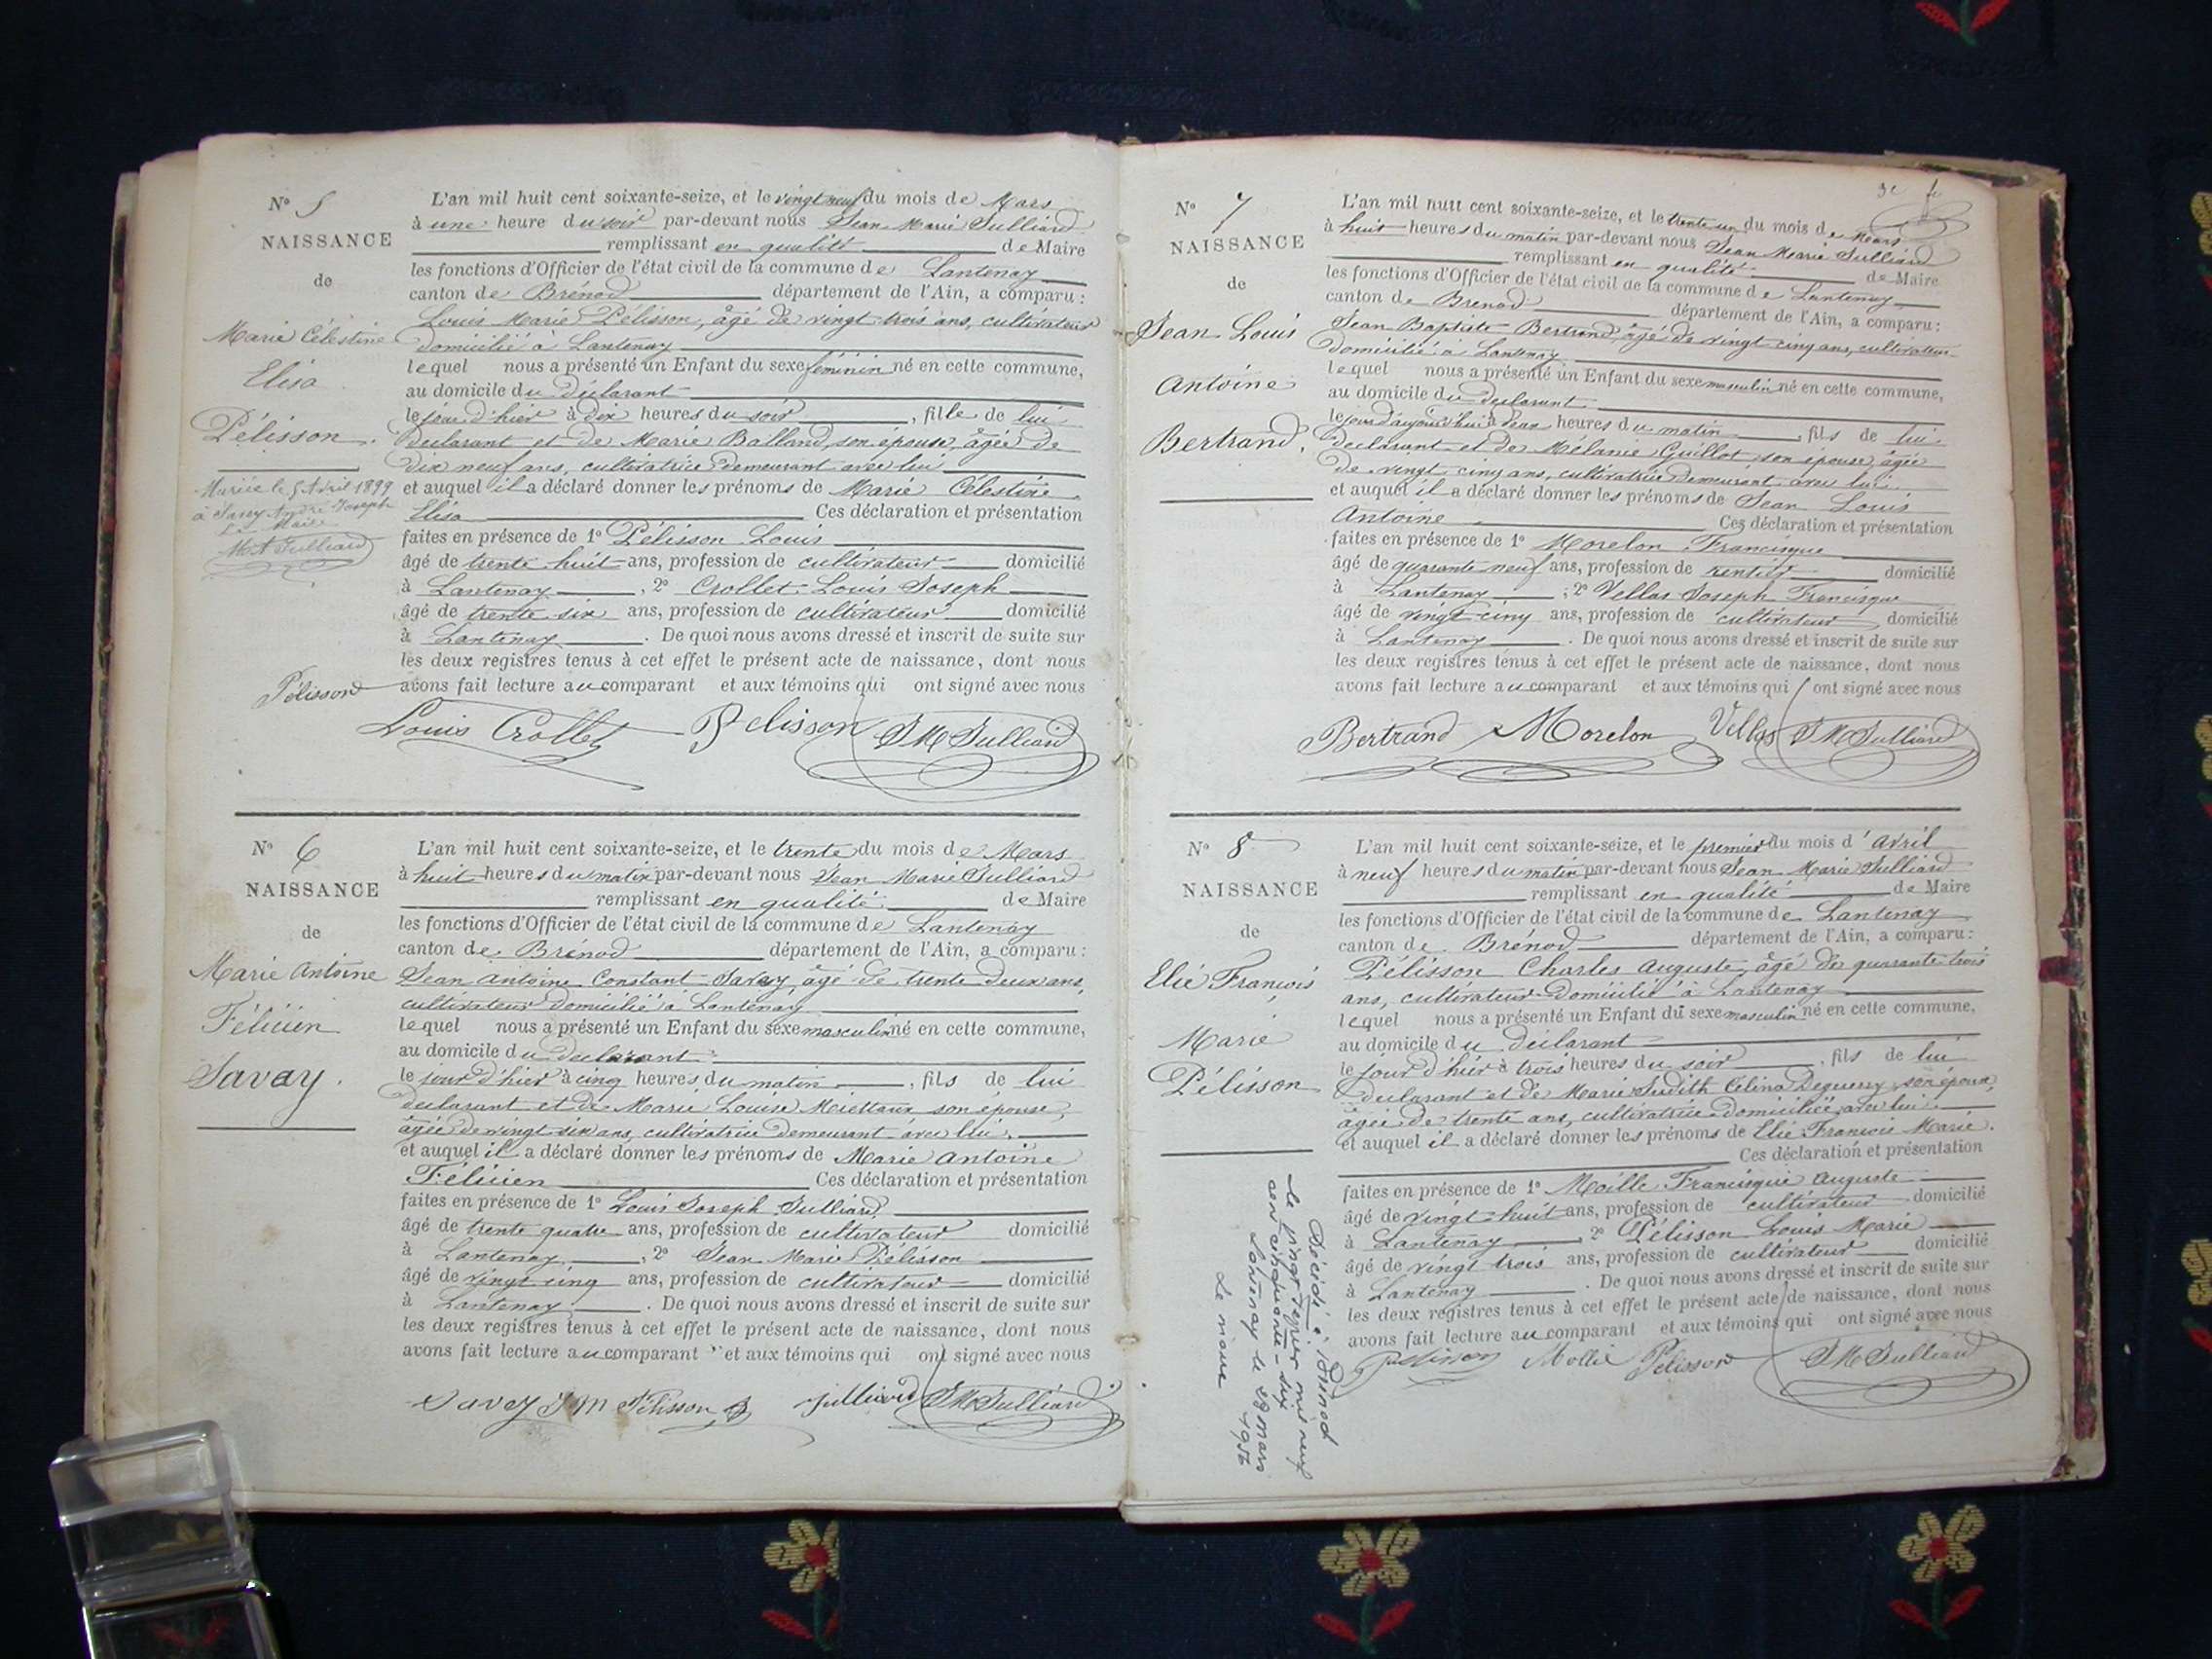 N° 5
NAISSANCE
de
Marie Célestine
Elisa
Pélisson.
Mariée le 5 Avril 1899
à Savey André Joseph
Le Maire
L'an mil huit cent soixante-seize, et le vingt neuf du mois de Mars
à une heure du soir par-devant nous Jean Marie Julliard
remplissant en qualité de Maire
les fonctions d'Officier de l'état civil de la commune de Lantenay
canton de Brénod département de l'Ain, a comparu :
Louis Marie Pélisson, âgé de vingt trois ans, cultivateur
domicilié à Lantenay
lequel nous a présenté un Enfant du sexe féminin né en cette commune,
au domicile du déclarant
le jour d'hier à dix heures du soir, fille de lui
déclarant et de Marie Balland, son épouse, âgée de
dix neuf ans, cultivatrice demeurant avec lui
et auquel il a déclaré donner les prénoms de Marie Célestine
Elisa Ces déclaration et présentation
faites en présence de 1° Pélisson Louis
âgé de trente huit ans, profession de cultivateur domicilié
à Lantenay, 2° Crollet Louis Joseph
âgé de trente six ans, profession de cultivateur domicilié
à Lantenay. De quoi nous avons dressé et inscrit de suite sur
les deux registres tenus à cet effet le présent acte de naissance, dont nous
avons fait lecture au comparant et aux témoins qui ont signé avec nous
Pélisson
Louis Crollet Pelisson JM Julliard
N° 6
NAISSANCE
de
Marie Antoine
Félicien
Savay.
L'an mil huit cent soixante-seize, et le trente du mois de Mars
à huit heures du matin par-devant nous Jean Marie Julliard
remplissant en qualité de Maire
les fonctions d'Officier de l'état civil de la commune de Lantenay
canton de Brénod département de l'Ain, a comparu :
Jean Antoine Constant Savay, âgé de trente deux ans,
cultivateur domicilié à Lantenay
lequel nous a présenté un Enfant du sexe masculin né en cette commune,
au domicile du déclarant
le jour d'hier à cinq heures du matin, fils de lui
déclarant et de Marie Louise son épouse,
âgée de vingt six ans, cultivatrice demeurant avec lui.
et auquel il a déclaré donner les prénoms de Marie Antoine
Félicien Ces déclaration et présentation
faites en présence de 1° Louis Joseph Julliard
âgé de trente quatre ans, profession de cultivateur domicilié
à Lantenay, 2° Jean Marie Pélisson
âgé de vingt cinq ans, profession de cultivateur domicilié
à Lantenay. De quoi nous avons dressé et inscrit de suite sur
les deux registres tenus à cet effet le présent acte de naissance, dont nous
avons fait lecture au comparant et aux témoins qui ont signé avec nous
Savey J M Pélisson Julliard JM Julliard
N° 7
NAISSANCE
de
Jean Louis
Antoine
Bertrand.
L'an mil huit cent soixante-seize, et le trente un du mois de Mars
à huit heures du matin par-devant nous Jean Marie Julliard
remplissant en qualité de Maire
les fonctions d'Officier de l'état civil de la commune de Lantenay
canton de Brenod département de l'Ain, a comparu :
Jean Baptiste Bertrand, âgé de vingt cinq ans, cultivateur
domicilié à Lantenay
lequel nous a présenté un Enfant du sexe masculin né en cette commune,
au domicile du déclarant
le jour d'aujourd'hui à deux heures du matin, fils de lui
déclarant et de Mélanie Guillot son épouse, âgée
de vingt cinq ans, cultivatrice demeurant avec lui.
et auquel il a déclaré donner les prénoms de Jean Louis
Antoine Ces déclaration et présentation
faites en présence de 1° Morelon Francisque
âgé de quarante neuf ans, profession de rentier domicilié
à Lantenay, 2° Vellas Joseph Francisque
âgé de vingt cinq ans, profession de cultivateur domicilié
à Lantenay. De quoi nous avons dressé et inscrit de suite sur
les deux registres tenus à cet effet le présent acte de naissance, dont nous
avons fait lecture au comparant et aux témoins qui ont signé avec nous
Bertrand Morelon Vellas JM Julliard
N° 8
NAISSANCE
de
Elie François
Marie
Pélisson
Décédé à Brénod
le vingt février mil neuf
cent cinquante-six
Lantenay le 28 mars
1956
Le maire
L'an mil huit cent soixante-seize, et le premier du mois d'Avril
à neuf heures du matin par-devant nous Jean Marie Julliard
remplissant en qualité de Maire
les fonctions d'Officier de l'état civil de la commune de Lantenay
canton de Brénod département de l'Ain, a comparu :
Pélisson Charles Auguste, âgé de quarante trois
ans, cultivateur domicilié à Lantenay
lequel nous a présenté un Enfant du sexe masculin né en cette commune,
au domicile du déclarant
le jour d'hier à trois heures du soir, fils de lui
déclarant et de Marie Judith Célina Deguerry, son épouse,
âgée de trente ans, cultivatrice domiciliée avec lui.
et auquel il a déclaré donner les prénoms de Elie François Marie.
Ces déclaration et présentation
faites en présence de 1° Moille Francisque Auguste
âgé de vingt huit ans, profession de cultivateur domicilié
à Lantenay, 2° Pélisson Louis Marie
âgé de vingt trois ans, profession de cultivateur domicilié
à Lantenay. De quoi nous avons dressé et inscrit de suite sur
les deux registres tenus à cet effet le présent acte de naissance, dont nous
avons fait lecture au comparant et aux témoins qui ont signé avec nous
Pelisson Mollie Pelisson JM Julliard